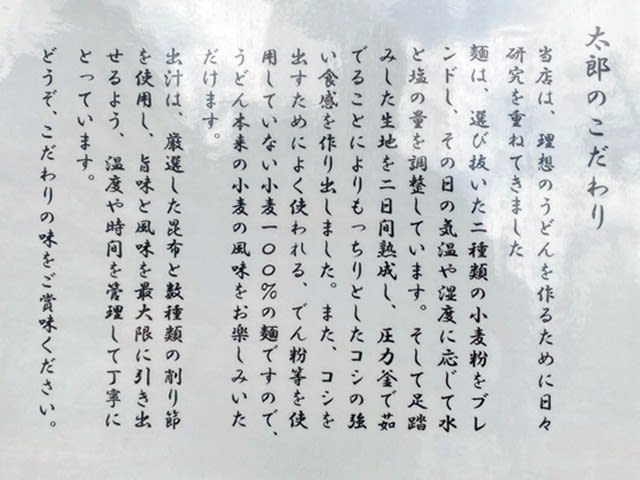 太郎のこだわり
当店は、理想のうどんを作るために日々
研究を重ねてきました
麺は、選び抜いた二種類の小麦粉をブレ
ンドし、その日の気温や湿度に応じて水
と塩の量を調整しています。そして足踏
みした生地を二日間熟成し、圧力釜で茹
でることによりもっちりとしたコシの強
い食感を作り出しました。また、コシを
出すためによく使われる、でん粉等を使
用していない小麦一〇〇%の麺ですので、
うどん本来の小麦の風味をお楽しみいた
だけます。
出汁は、厳選した昆布と数種類の削り節
を使用し、旨味と風味を最大限に引き出
せるよう、温度や時間を管理して丁寧に
とっています。
どうぞ、こだわりの味をご賞味ください。